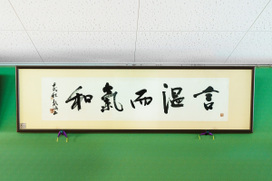 言溫而氣和